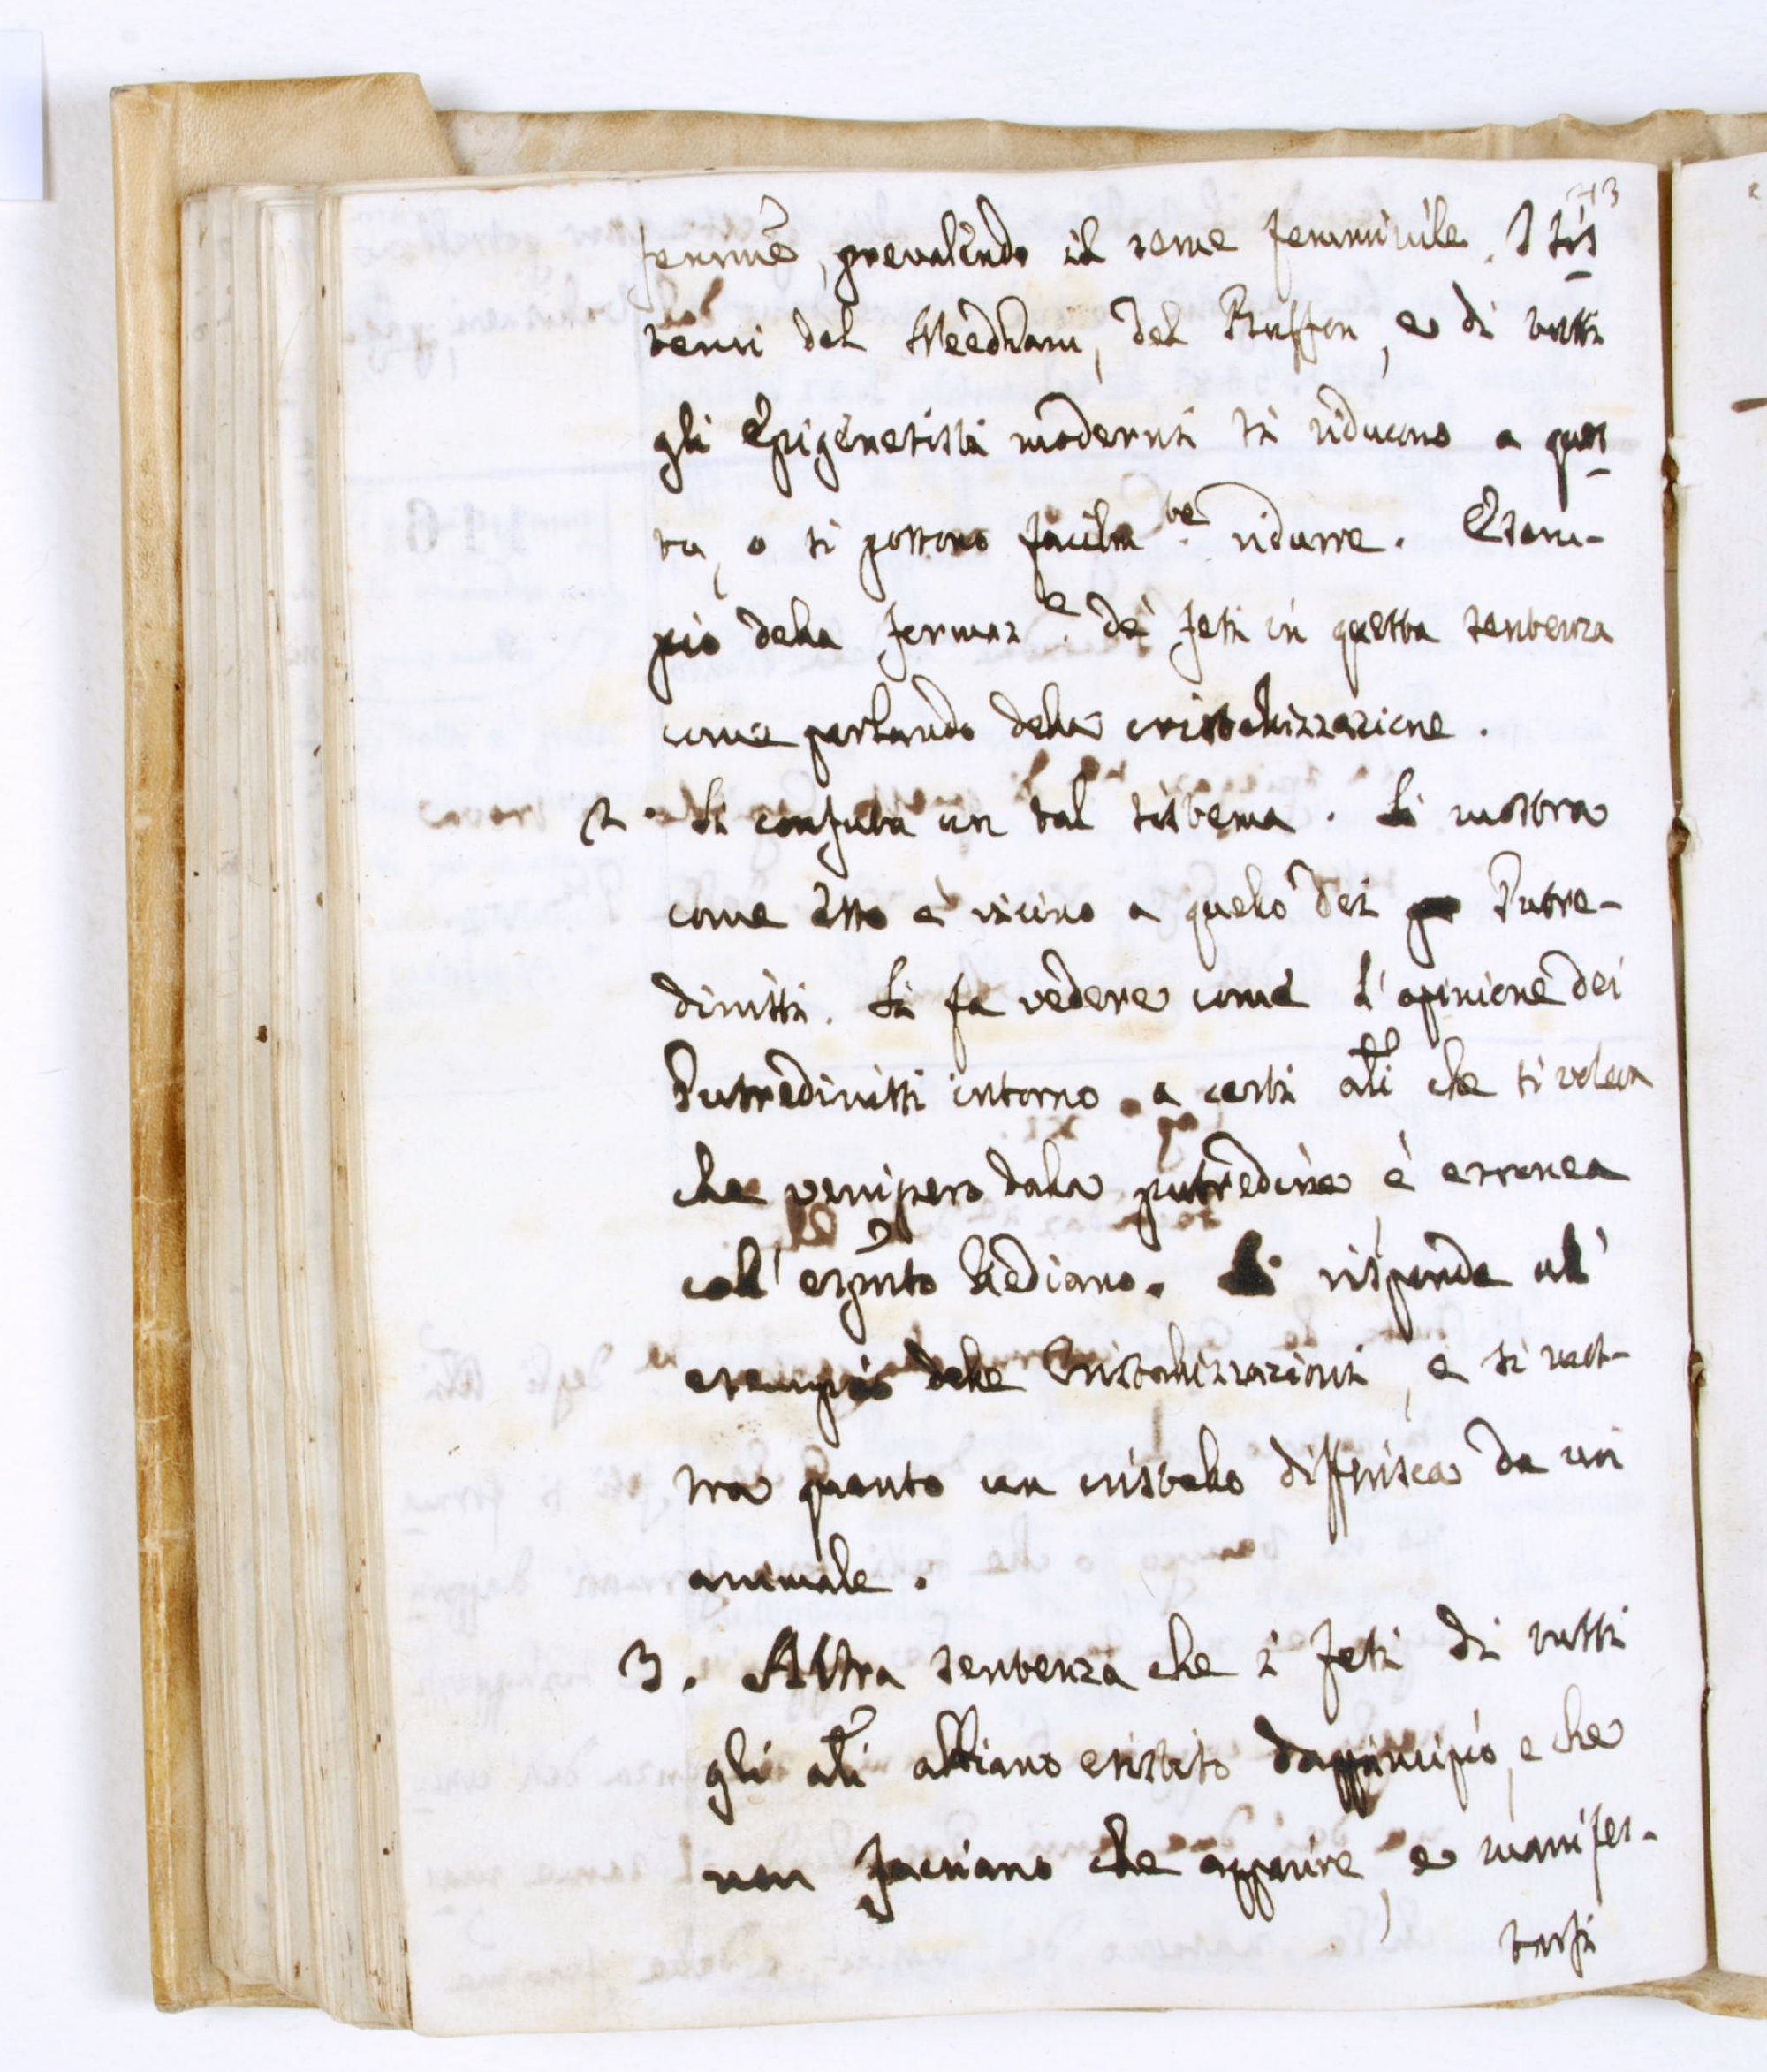 femmē, prevalendo il seme femminile. I sis
temi del Needham, del Buffon, e di tutti
gli Epigenetisti moderni si riducono a ques
ta, o si possono facilm.te ridurre. Esem-
pio della formaz.e de' feti in questa sentenza
come parlando della cristallizzazione.
2. Si confuta un tal sistema. Si mostra
come esso è vicino a quello dei Putre-
dinisti. Si fa vedere come l'opinione dei
Putredinisti intorno a certi ali che si volea
che venissero dalla putredine è erronea
coll' esp.to Rediano. Si risponde all'
esempio delle Cristallizzazioni, e si most-
tra quanto un cristallo differisca da un
animale.
3. Altra sentenza che i feti di tutti
gli ali abbiano esistito dapprincipio, e che
non facciano che apparire, e manifes-
tarsi